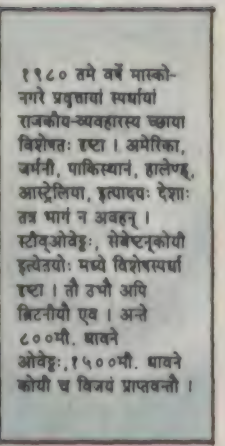 १९८० तमे वर्षे मास्को-
नगरे प्रवृत्तायां स्पर्धायां
राजकीय-व्यवहारस्य च्छाया
विशेषतः दृष्टा । अमेरिका,
जर्मनी, पाकिस्थानं, हालेण्ड्,
आस्ट्रेलिया, इत्यादयः देशाः
तत्र भागं न अवहन् ।
स्टीव्ओवेट्टः, सेबेष्टन्कोयी
इत्येतयोः मध्ये विशेषस्पर्धा
दृष्टा । तौ उभौ अपि
ब्रिटनीयौ एव । अन्ते
८००मी. धावने
ओवेट्टः,१५००मी. धावने
कोयी च विजयं प्राप्तवन्तौ ।